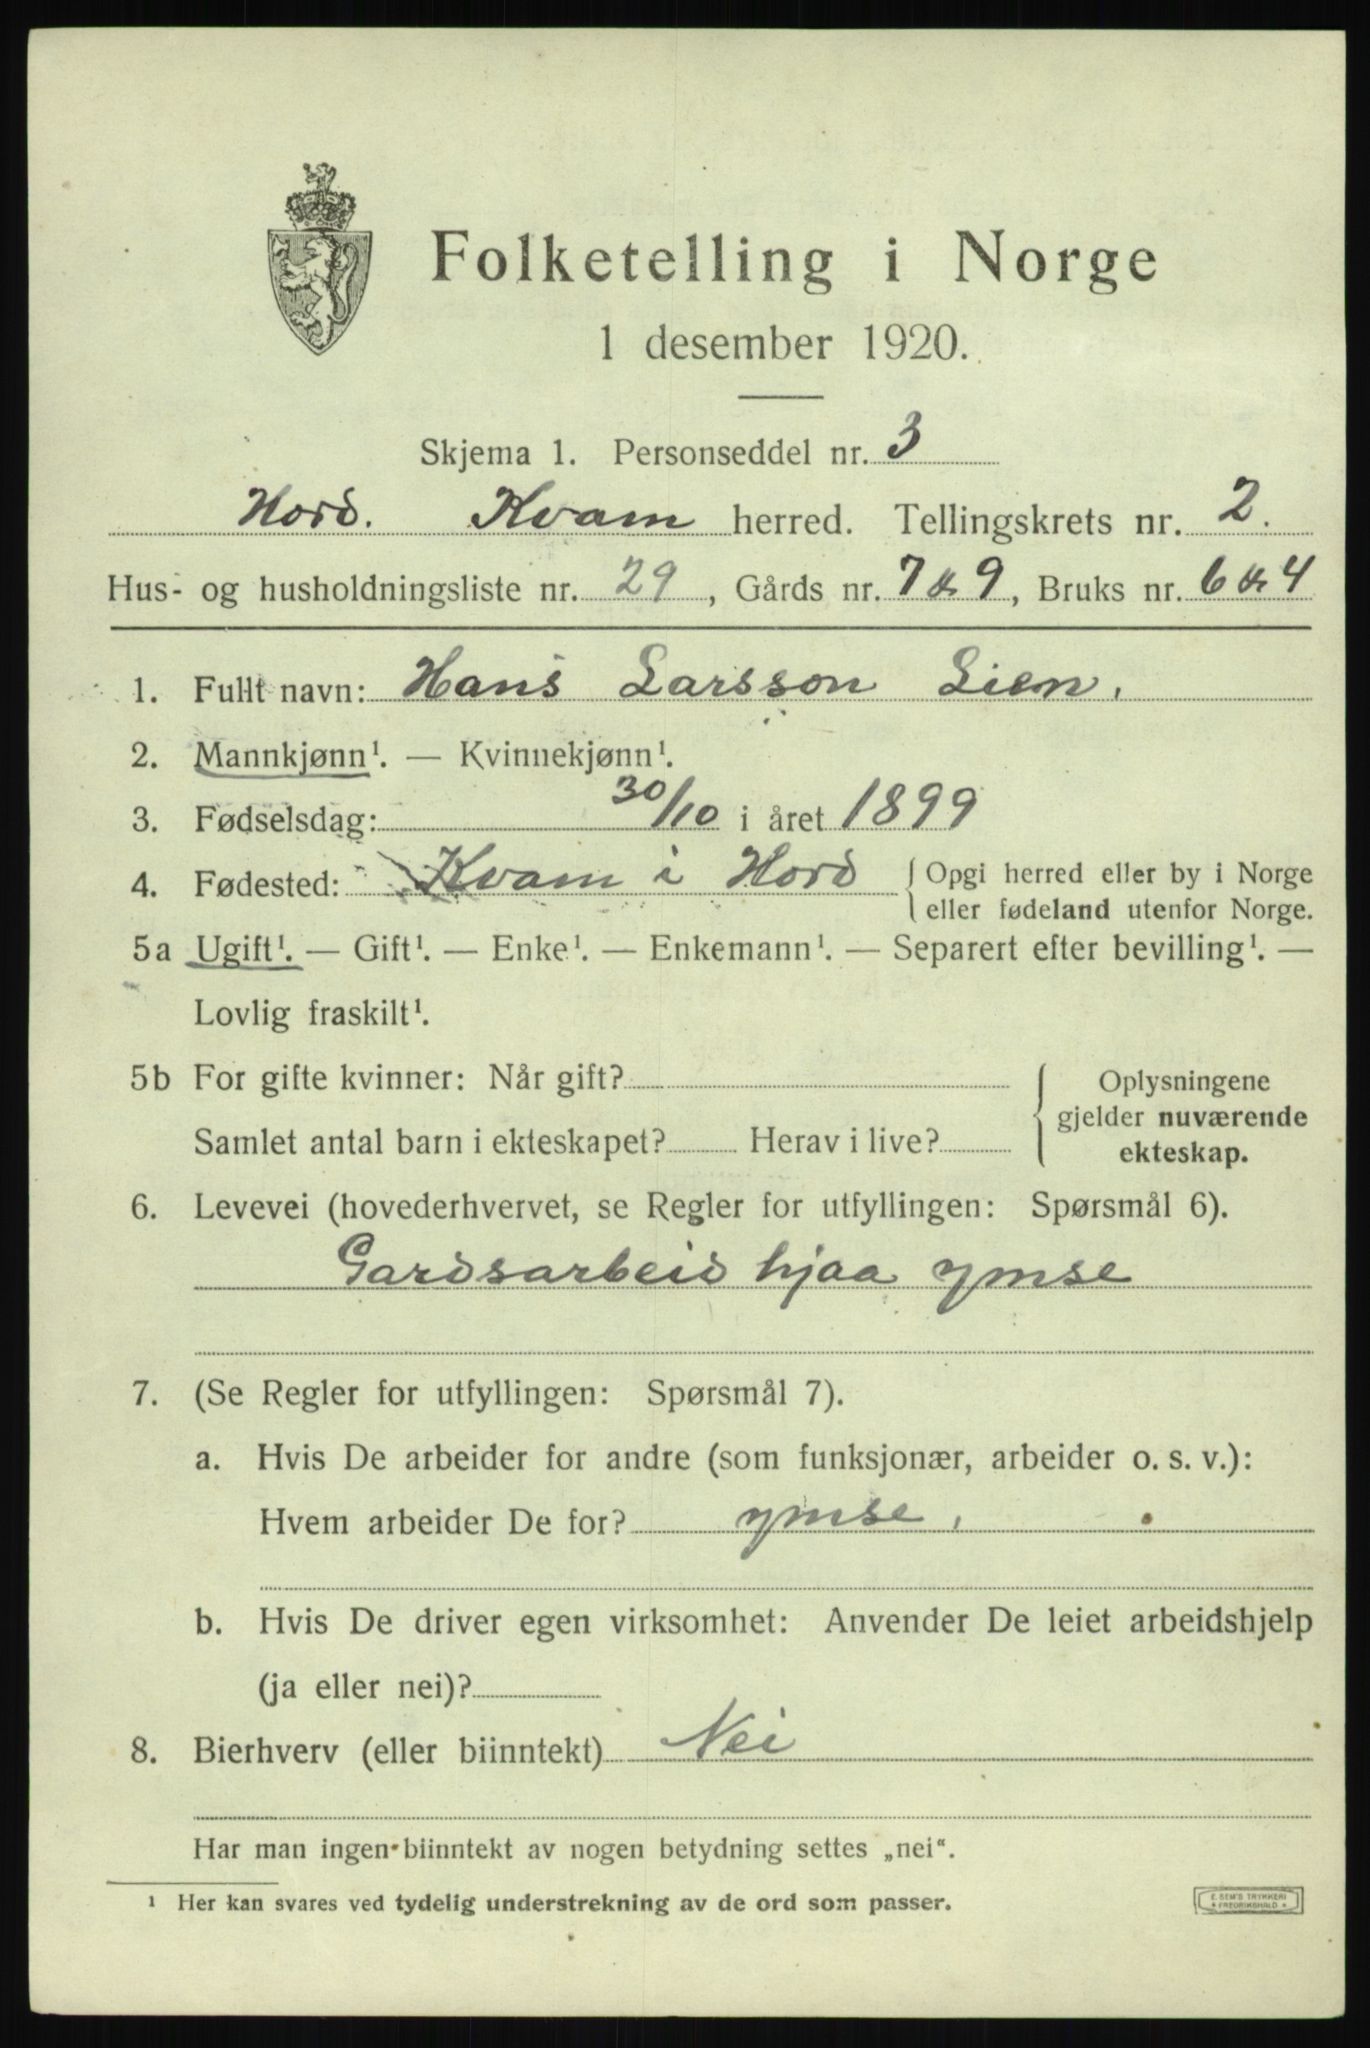 Folketelling i Norge
1 desember 1920.
Skjema 1. Personseddel nr. 3
Hord. Kvam herred. Tellingskrets nr. 2.
Hus- og husholdningsliste nr. 29, Gårds nr. 7 & 9, Bruks nr. 6 & 4
1. Fullt navn: Hans Larsson Lien.
2. Mannkjønn¹. — Kvinnekjønn¹.
3. Fødselsdag: 30/10 i året 1899
4. Fødested: Kvam i Hord { Opgi herred eller by i Norge
eller fødeland utenfor Norge.
5a Ugift¹. — Gift¹. — Enke¹. — Enkemann¹. — Separert efter bevilling¹. —
Lovlig fraskilt¹.
5b For gifte kvinner: Når gift?
Samlet antal barn i ekteskapet? Herav i live?
Oplysningene
gjelder nuværende
ekteskap.
6. Levevei (hovederhvervet, se Regler for utfyllingen: Spørsmål 6).
Gardsarbeid hjaa ymse
7. (Se Regler for utfyllingen: Spørsmål 7).
a. Hvis De arbeider for andre (som funksjonær, arbeider o. s. v.):
Hvem arbeider De for? ymse.
b. Hvis De driver egen virksomhet: Anvender De leiet arbeidshjelp
(ja eller nei)?
8. Bierhverv (eller biinntekt) Nei
Har man ingen biinntekt av nogen betydning settes „nei“.
¹ Her kan svares ved tydelig understrekning av de ord som passer.
E. SEM'S TRYKKERI
FREDRIKSHALD